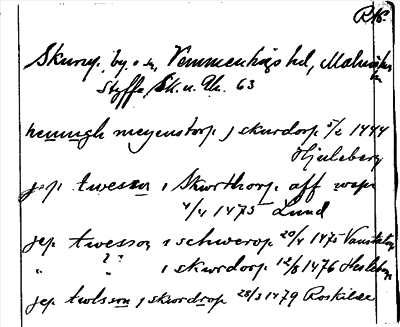 RAK.
Skurup, by o. sn, Vemmenhögs hd, Malmöhus
län
Styffe, Sk. u. Un. 63
henningh meyenstorp j skurdorp 5/2 1444
Hjuleberg
jep twesson i Skwrthorp aff wapn
4/4 1475 Lund
jep twesson i schwerop 20/4 1475 Vanstaden
" " ? " i skwrdorp 12/8 1476
jep twlsson j skwrdrop 28/3 1479 Roskilde